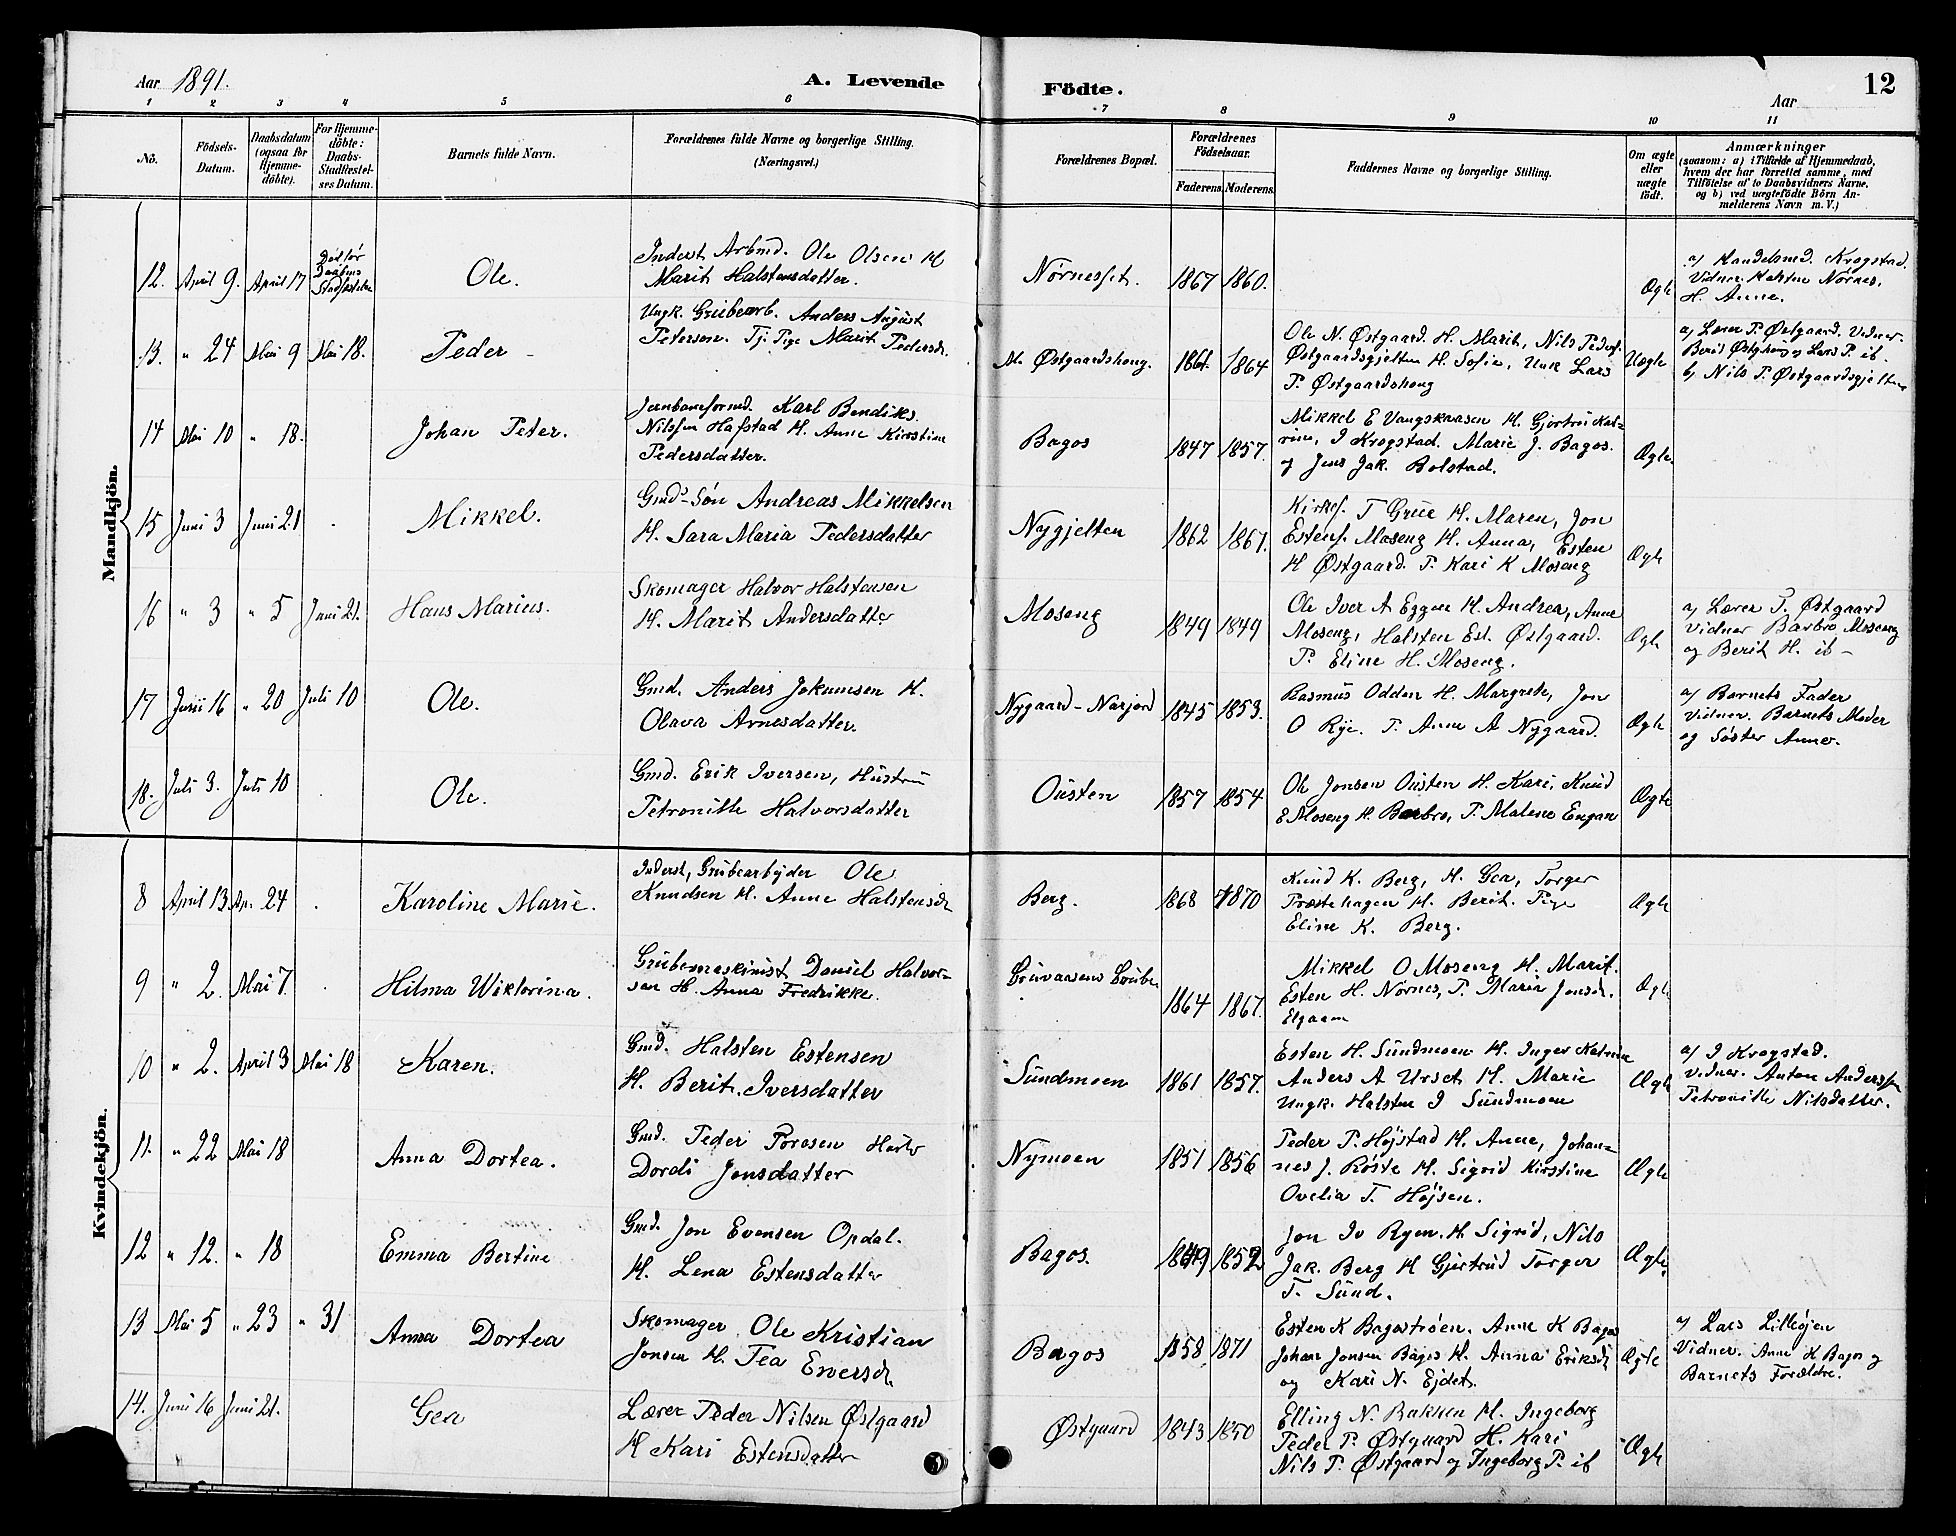 Aar 1891.
A. Levende Födte.
Aar
12
1 2 3 4 5 6 7 8 9 10 11
No.
Födsels-Datum.
Daabsdatum (ogsaa för Hjemme-döbte).
For Hjemme-döbte: Daabs-Stadfæstel-ses Datum.
Barnets fulde Navn.
Forældrenes fulde Navne og borgerlige Stilling.
(Næringsvei.)
Forældrenes Bopæl.
Forældrenes Födselsaar.
Faderens. Moderens.
Faddernes Navne og borgerlige Stilling.
Om ægte eller uægte födt.
Anmærkninger
(saasom: a) i Tilfælde af Hjemmedaab,
hvem der har forrettet samme, med
Tilföielse af to Daabsvidners Navne,
og b) ved uægtefödte Börn An-
melderens Navn m. V.)
Mandkjön.
12. April 9. April 17 Død før Daabens Stadfæstelse Ole. Inderst Arbmd. Ole Olsen H.
Marit Halstensdatter. Nørnesset. 1867 1860. Ægte
a/ Handelsmd. Krogstad.
Vidner Halsten Nørnes,
H. Anne.
13. " 24 Mai 9 Mai 18. Peder - Ungk. Grubearb. Anders August
Peterson. Tj. Pige Marit Pedersdr. M. Østgaardshong. 1861. 1864 Uægte
Ole N. Østgaard. H. Marit, Nils Peders.
Østgaardsgjelten H. Sofie, Unk Lars
P. Østgaardshong
a/ Lærer P. Østgaard. Vidner
Berit Østghong og Lars P. ib.
b/ Nils P. Østgaardsgjelten
14 Mai 10 " 18. Johan Peter. Jernbaneformd. Karl Bendiks.
Nilssen Hafstad H. Anne Kirstine
Pedersdatter. Bagos 1847 1857. Ægte.
Mikkel E Vangskaasen H. Gjertrui Kat-
rine, I Krogstad. Marie J. Bagos.
og Jens Jak. Bolstad.
15 Juni 3 Juni 21 . Mikkel. Gmds-Søn Andreas Mikkelsen
H. Sara Maria Pedersdatter Nygjelten 1862 1867. Ægte
Kirkes. T Grue H. Maren, Jon
Estens. Moseng H. Anna, Esten
H Østgaard P. Kari K Moseng
16 " 3 " 5 Juni 21. Hans Marius. Skomager Halvor Halstensen
H. Marit Andersdatter Moseng 1849 1849 Ægte
Ole Iver A Eggen H. Andrea, Anne
Moseng, Halsten Est. Østgaard.
P. Eline H. Moseng.
a/ Lærer P. Østgaard
Vidner Barbro Moseng
og Berit H. ib -
17 Juni 16 " 20 Juli 10 Ole. Gmd. Anders Jokumsen H.
Olava Arnesdatter. Nygaard-Narjord 1845 1853. Ægte
Rasmus Odden H. Margrete, Jon
O Rye. P. Anne A Nygaard.
a/ Barnets Fader
Vidner. Barnets Moder
og Søster Anne.
18. Juli 3. Juli 10 . Ole. Gmd. Erik Iversen, Hustru
Petronille Halvorsdatter Ousten 1857 1854 Ægte
Ole Jonsen Ousten H. Kari, Knud
E Moseng H. Barbro, P. Malene Engan
Kvindekjön.
8 April 13 Ap. 24 . Karoline Marie. Inderst, Grubearbejder Ole
Knudsen H. Anne Halstensdr Berg. 1868 1870 Ægte
Knud K. Berg, H. Gea, Torger
Præstehagen H. Berit. Pige
Eline K. Berg.
9 " 2. Mai 7 . Hilma Wiktorina. Grubemaskinist Daniel Halvor-
sen H. Anna Fredrikke. 1864 1867. Ægte
Mikkel O Moseng H. Marit.
Esten H. Nørnes, P. Marie Jonsdr.
Elgaaen
10 " 2. April 3 Mai 18 Karen. Gmd. Halsten Estensen
H. Berit. Iversdatter Sundmoen 1861 1857. Ægte
Esten H. Sundmoen H. Inger Katrine
Anders A Urset H. Marie
Ungk. Halsten I Sundmoen
a/ I Krogstad.
Vidner. Anton Anderssen
Petronille Nilsdatter.
11. " 22 Mai 18 Anna Dortea. Gmd. Peder Poresen
Dordi Jonsdatter Nymoen 1851 1856 Ægte
Peder P. Højstad H. Anne, Johan-
nes J. Røste H. Sigrid Kirstine
Ovelia T. Højsen.
12 " 12. " 18 Emma Bertine Gmd. Jon Evensen Opdal.
H. Lena Estensdatter Bagos. 1849 1852 Ægte.
Jon Iv Ryen. H. Sigrid, Nils
Jak. Berg H Gjertrud Torger
T. Sund.
13 Mai 5 " 23 " 31 Anna Dortea Skomager Ole Kristian
Jonsen H. Tea Eversdr. Bagos 1858. 1871 Ægte
Esten K Bagostrøen. Anne K Bagos
Johan Jonsen Bagos H. Anna Eriksdr
og Kari N. Ejdet.
a/ Lars Lilleøjen
Vidner. Anne K Bagos og
Barnets Forældre.
14. Juni 16 Juni 21. Gea Lærer Peder Nilsen Østgaard
H Kari Estensdatter Østgaard 1843 1850 Ægte
Elling N. Bakken H. Ingeborg
Peder P. Østgaard H. Kari
Nils P. Østgaard og Ingeborg P. ib